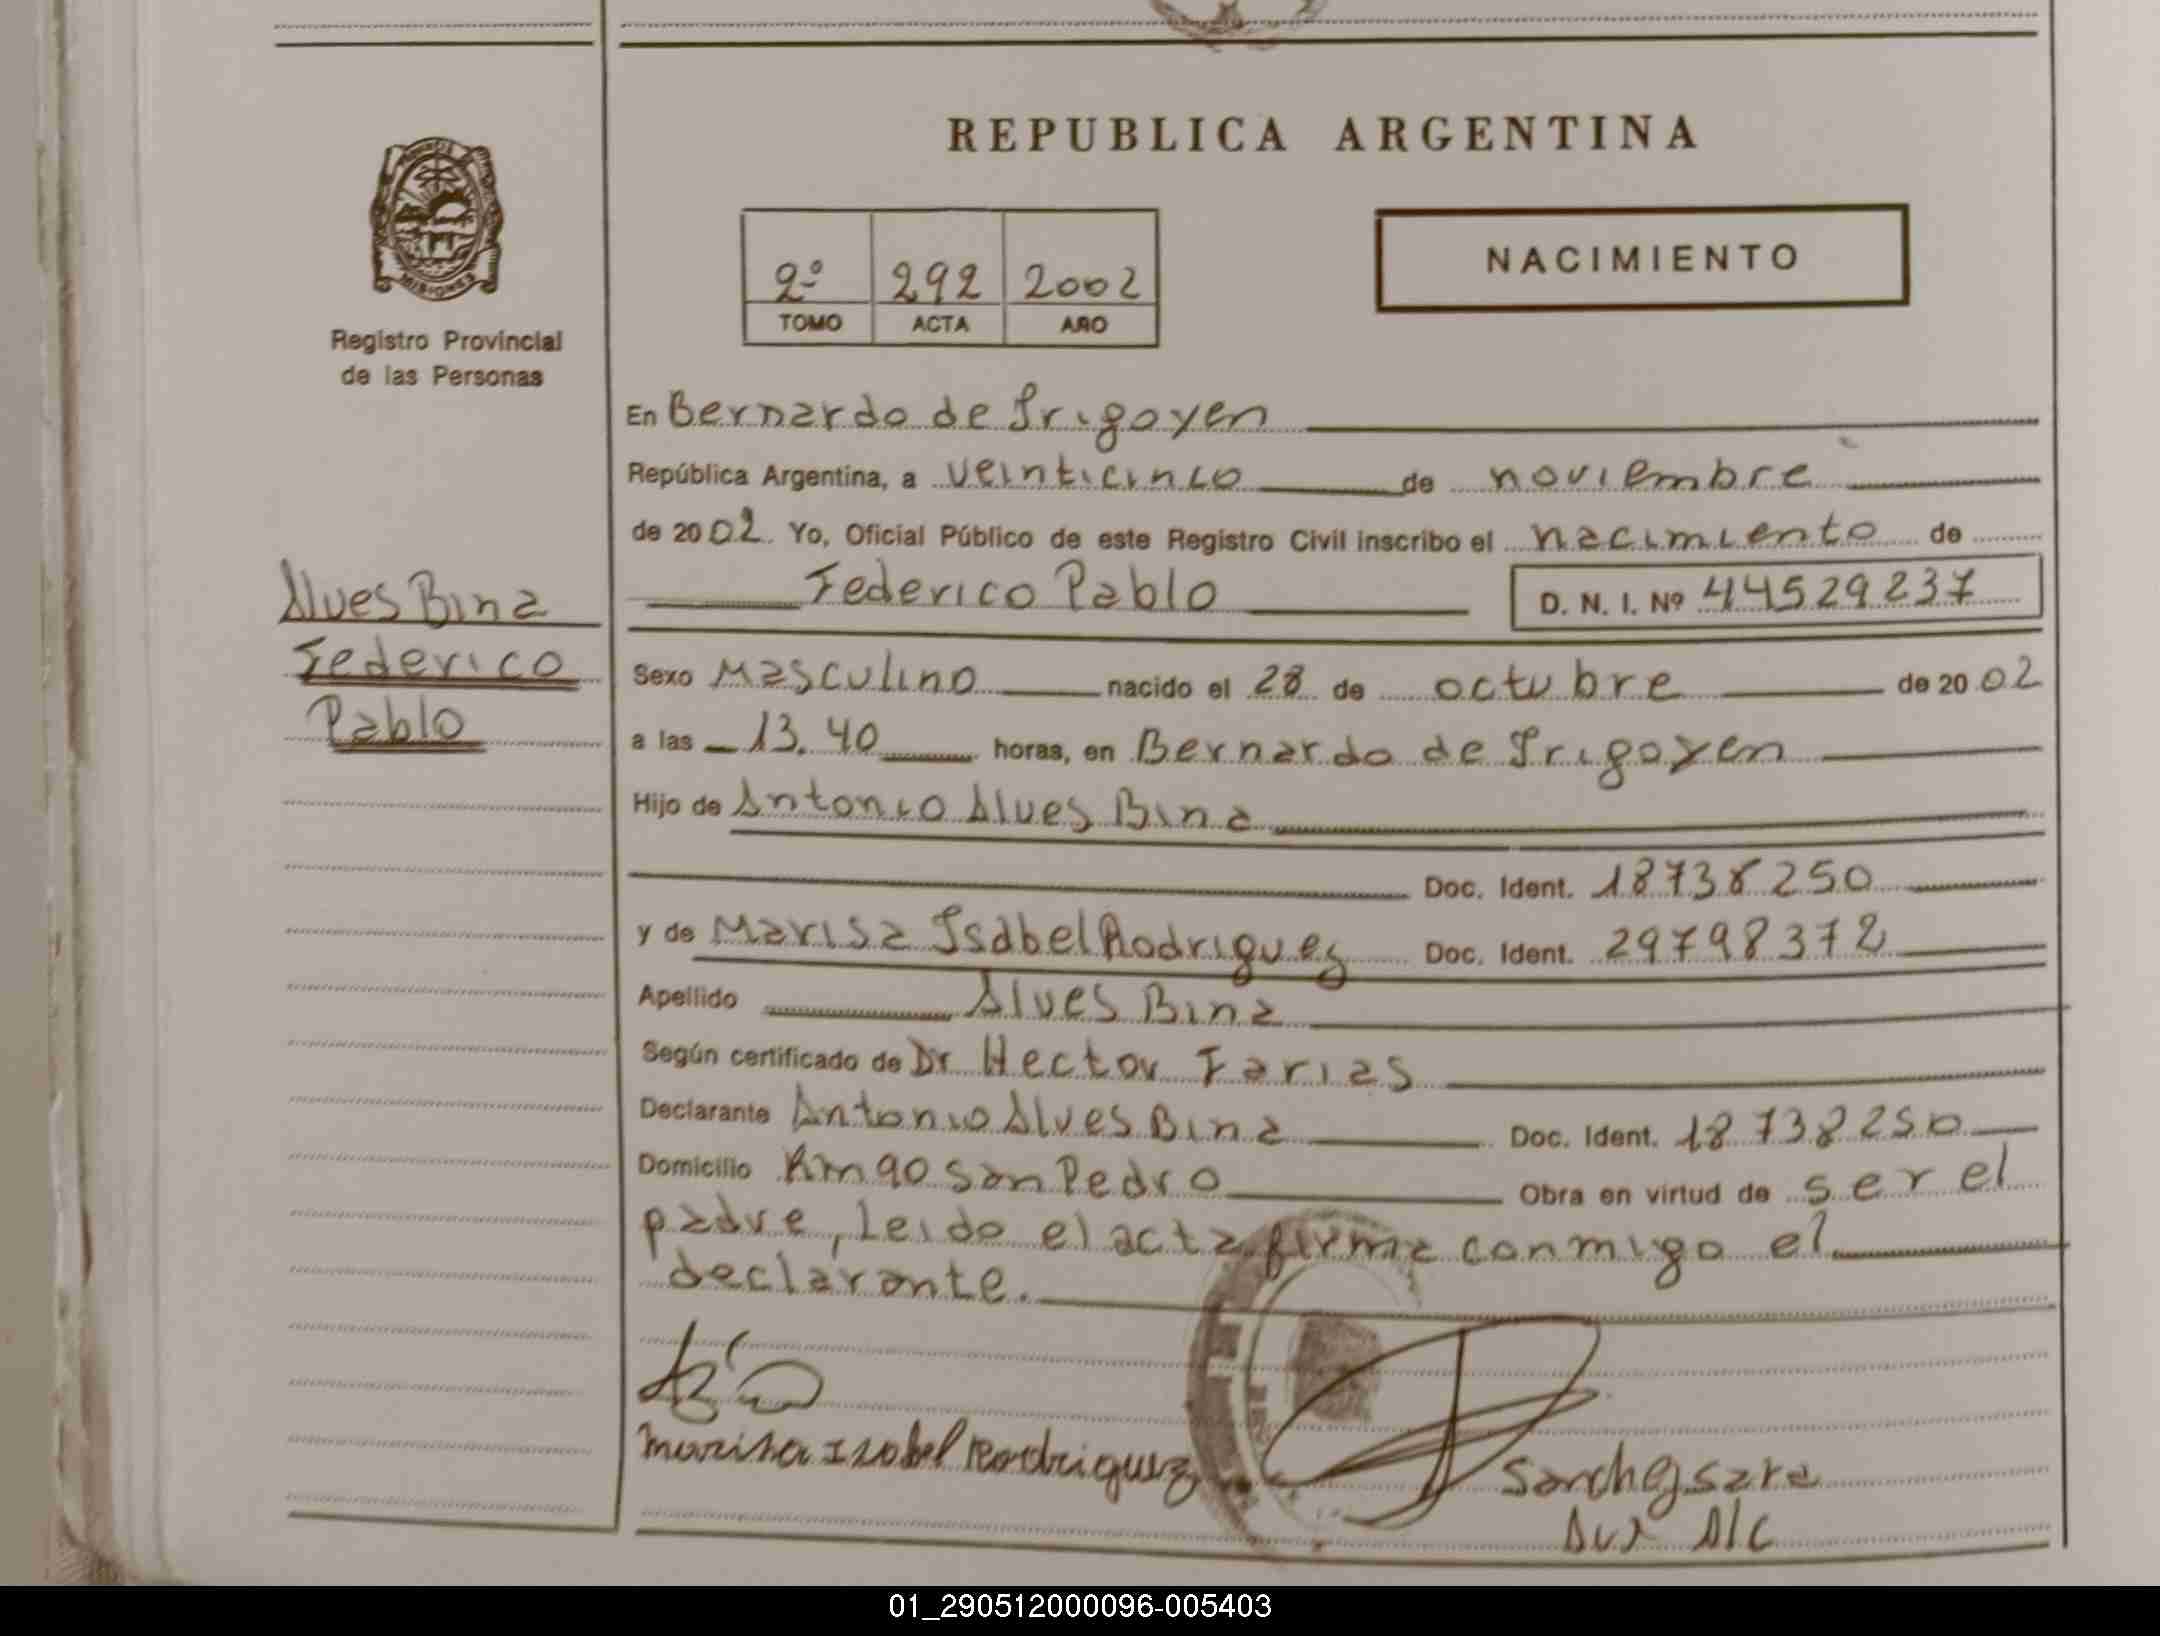 REPUBLICA ARGENTINA
PROVINCIA
MISIONES
Registro Provincial
de las Personas
2º 292 2002
TOMO ACTA AÑO
NACIMIENTO
En Bernardo de Irigoyen
República Argentina, a veinticinco de noviembre
de 2002. Yo, Oficial Público de este Registro Civil inscribo el nacimiento de
Federico Pablo D. N. I. Nº 44529237
Alves Bina
Federico
Pablo
Sexo Masculino nacido el 28 de octubre de 2002
a las 13.40 horas, en Bernardo de Irigoyen
Hijo de Antonio Alves Bina
Doc. Ident. 18738250
y de Marisa Isabel Rodrigues Doc. Ident. 29798372
Apellido Alves Bina
Según certificado de Dr Hector Farias
Declarante Antonio Alves Bina Doc. Ident. 18738250
Domicilio Km 90 San Pedro Obra en virtud de ser el
padre, Leido el acta firma conmigo el
declarante.
Marisa Isabel Rodriguez
Sanchez Sara
Aux A/C
01_290512000096-005403